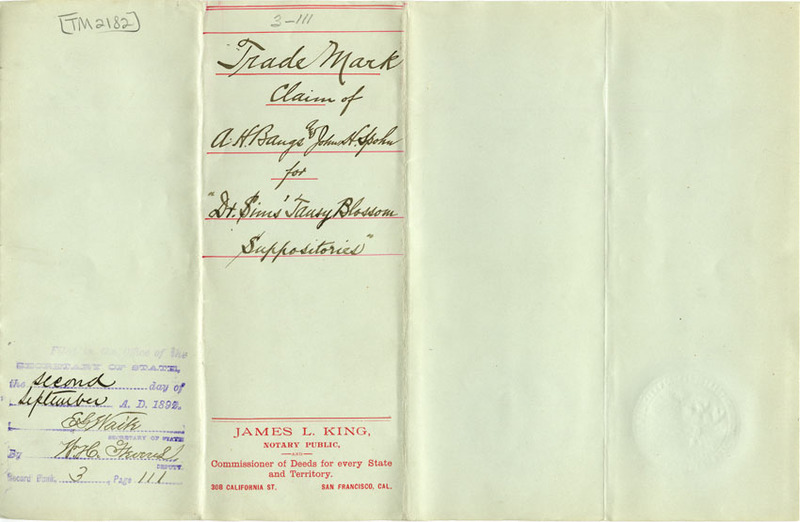 [TM2182]
3-111
Trade Mark
Claim of
A H. Bangs & John H. Spohn
for
"Dr. Sims' Tansy Blossom
Suppositories"
Filed in the Office of the
SECRETARY OF STATE,
the second day of
September A. D. 1892.
E G Waite
SECRETARY OF STATE
By W. H. 
DEPUTY.
Record Book 3, Page 111
JAMES L. KING,
NOTARY PUBLIC,
AND
Commissioner of Deeds for every State
and Territory.
308 CALIFORNIA ST. SAN FRANCISCO, CAL.